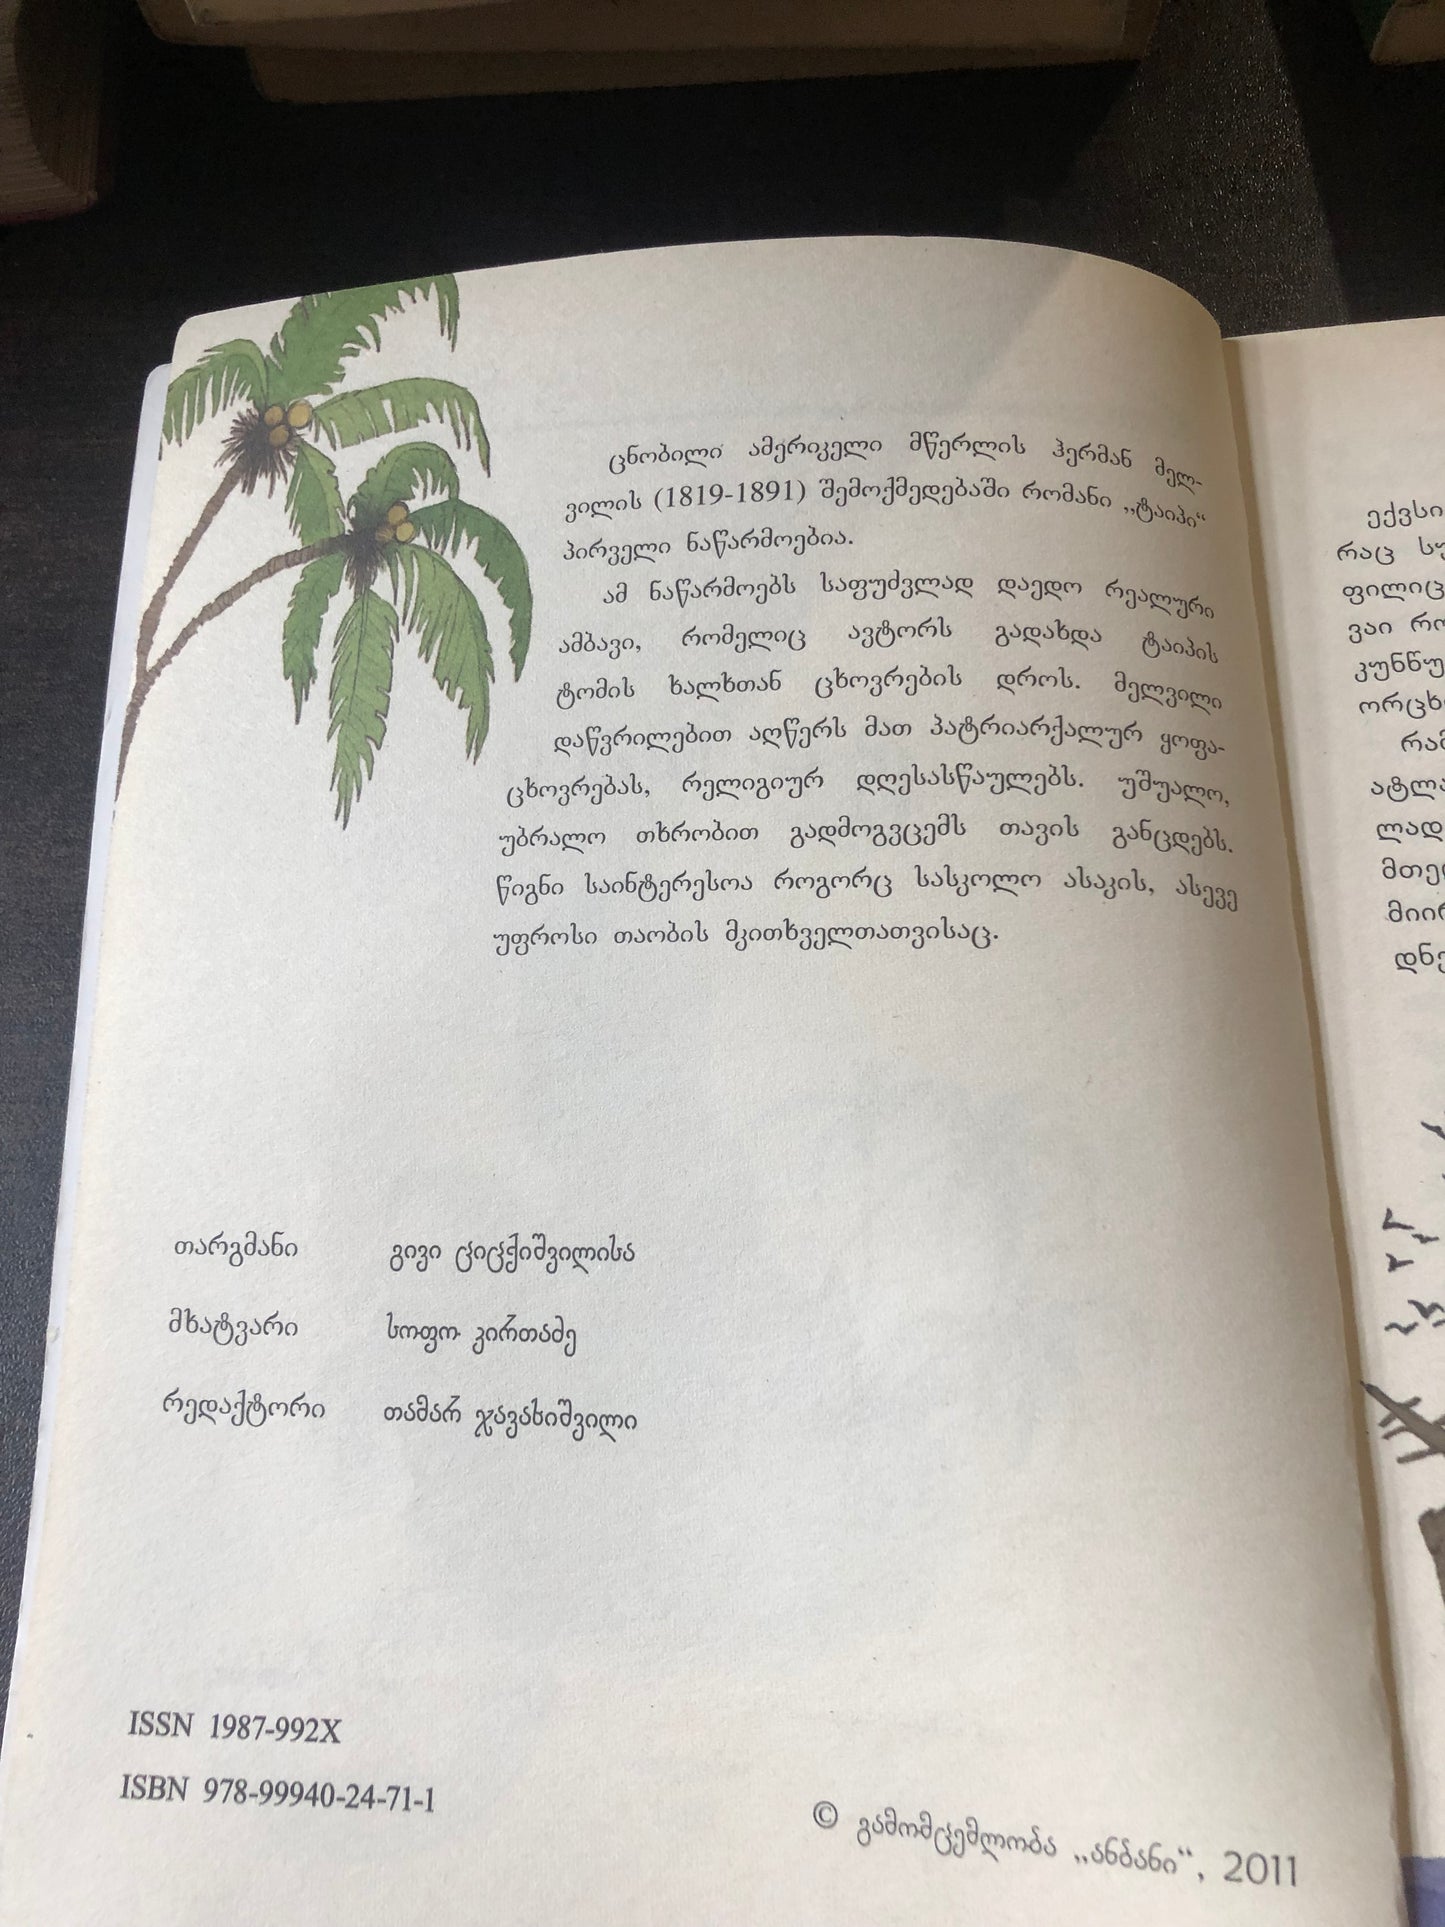 ცნობილი ამერიკელი მწერლის ჰერმან მელ-
ვილის (1819-1891) შემოქმედებაში რომანი „ტაიპი“
პირველი ნაწარმოებია.
ამ ნაწარმოებს საფუძვლად დაედო რეალური
ამბავი, რომელიც ავტორს გადახდა ტაიპის
ტომის ხალხთან ცხოვრების დროს. მელვილი
დაწვრილებით აღწერს მათ პატრიარქალურ ყოფა-
ცხოვრებას, რელიგიურ დღესასწაულებს. უშუალო,
უბრალო თხრობით გადმოგვცემს თავის განცდებს.
წიგნი საინტერესოა როგორც სასკოლო ასაკის, ასევე
უფროსი თაობის მკითხველთათვისაც.
თარგმანი გივი ციცქიშვილისა
მხატვარი სოფო კირთაძე
რედაქტორი თამარ ჯავახიშვილი
ISSN 1987-992X
ISBN 978-99940-24-71-1
© გამომცემლობა „ანბანი“, 2011
ექვსი
რაც
ვაი